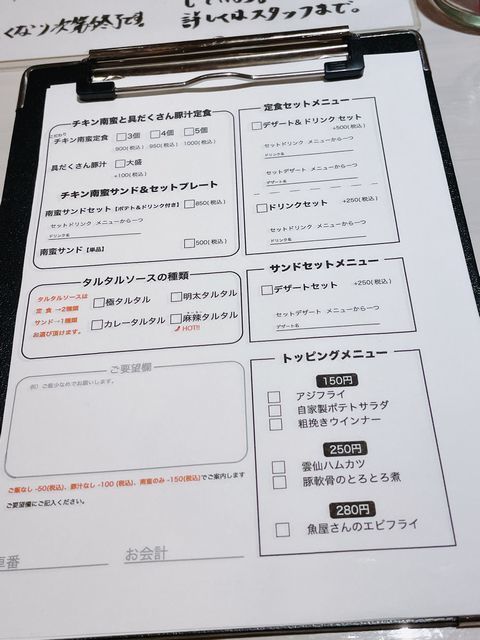 くなり次第終了です
詳しくはスタッフまで。
チキン南蛮と具だくさん豚汁定食
こだわり
チキン南蛮定食 3個 4個 5個
900(税込) 950(税込) 1000(税込)
具だくさん豚汁 大盛
+100(税込)
チキン南蛮サンド&セットプレート
南蛮サンドセット【ポテト&ドリンク付き】 850(税込)
セットドリンク メニューから一つ
ドリンク名
南蛮サンド【単品】 500(税込)
タルタルソースの種類
タルタルソースは
定食→2種類
サンド→1種類
お選び頂けます。
極タルタル 明太タルタル
カレータルタル 麻辣タルタル
HOT!!
ご要望欄
例）ご飯少なめでお願いします。
ご飯なし -50(税込)、豚汁なし -100 (税込)、南蛮のみ -150(税込)でご案内します
ご要望欄にご記入ください。
車番 お会計
定食セットメニュー
デザート& ドリンク セット
+500(税込)
セットドリンク メニューから一つ
ドリンク名
セットデザート メニューから一つ
デザート名
ドリンクセット +250(税込)
セットドリンク メニューから一つ
ドリンク名
サンドセットメニュー
デザートセット +250(税込)
セットデザート メニューから一つ
デザート名
トッピングメニュー
150円
アジフライ
自家製ポテトサラダ
粗挽きウインナー
250円
雲仙ハムカツ
豚軟骨のとろとろ煮
280円
魚屋さんのエビフライ